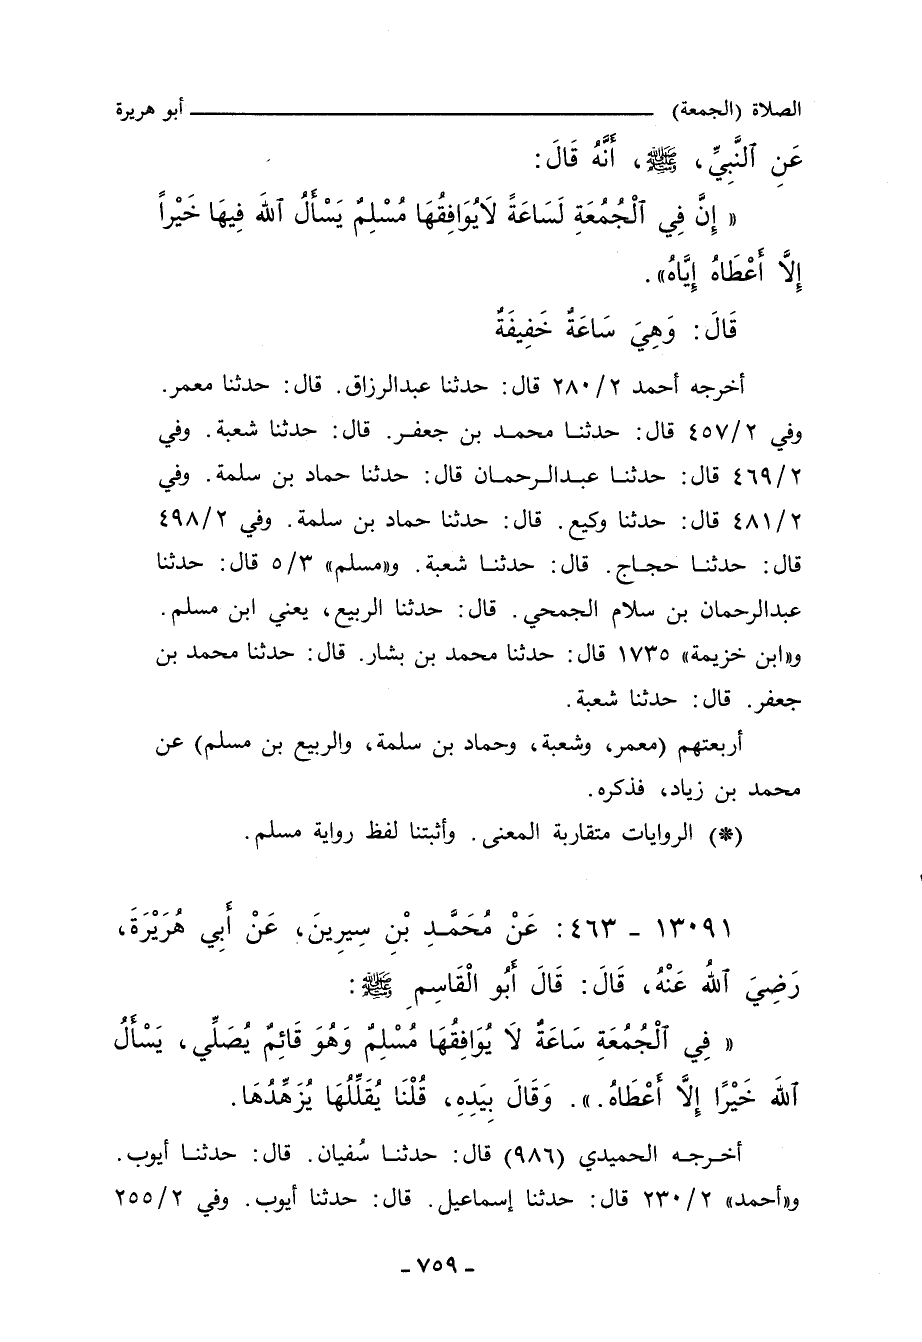 الصلاة (الجمعة) ــــــــــــــــــــــــــــــــ أبو هريرة
عَنِ ٱلنَّبِيِّ، ﷺ، أَنَّهُ قَالَ:
« إِنَّ فِي ٱلْجُمُعَةِ لَسَاعَةً لَايُوَافِقُهَا مُسْلِمٌ يَسْأَلُ ٱللهَ فِيهَا خَيْراً
إِلَّا أَعْطَاهُ إِيَّاهُ».
قَالَ: وَهِيَ سَاعَةٌ خَفِيفَةٌ
أخرجه أحمد ٢/٢٨٠ قال: حدثنا عبدالرزاق. قال: حدثنا معمر.
وفي ٢/٤٥٧ قال: حدثنا محمد بن جعفر. قال: حدثنا شعبة. وفي
٢/٤٦٩ قال: حدثنا عبدالرحمان قال: حدثنا حماد بن سلمة. وفي
٢/٤٨١ قال: حدثنا وكيع. قال: حدثنا حماد بن سلمة. وفي ٢/٤٩٨
قال: حدثنا حجاج. قال: حدثنا شعبة. و«مسلم» ٣/٥ قال: حدثنا
عبدالرحمان بن سلام الجمحي. قال: حدثنا الربيع، يعني ابن مسلم.
و«ابن خزيمة» ١٧٣٥ قال: حدثنا محمد بن بشار. قال: حدثنا محمد بن
جعفر. قال: حدثنا شعبة.
أربعتهم (معمر، وشعبة، وحماد بن سلمة، والربيع بن مسلم) عن
محمد بن زياد، فذكره.
(*) الروايات متقاربة المعنى. وأثبتنا لفظ رواية مسلم.
١٣٠٩١ - ٤٦٣: عَنْ مُحَمَّدِ بْنِ سِيرِينَ، عَنْ أَبِي هُرَيْرَةَ،
رَضِيَ ٱللهُ عَنْهُ، قَالَ: قَالَ أَبُو الْقَاسِمِ ﷺ:
« فِي ٱلْجُمُعَةِ سَاعَةٌ لَا يُوَافِقُهَا مُسْلِمٌ وَهُوَ قَائِمٌ يُصَلِّي، يَسْأَلُ
ٱللهَ خَيْرًا إِلَّا أَعْطَاهُ.». وَقَالَ بِيَدِهِ، قُلْنَا يُقَلِّلُهَا يُزَهِّدُهَا.
أخرجه الحميدي (٩٨٦) قال: حدثنا سُفيان. قال: حدثنا أيوب.
و«أحمد» ٢/٢٣٠ قال: حدثنا إسماعيل. قال: حدثنا أيوب. وفي ٢/٢٥٥
- ٧٥٩ -